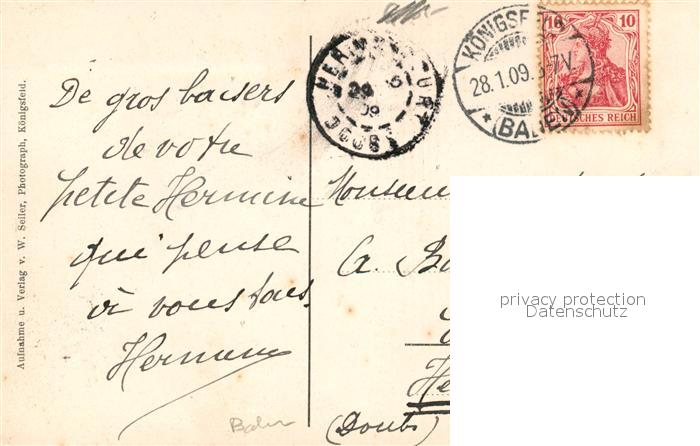 De gros baisers
de votre
petite Hermine
qui pense
à vous tous.
Hermine
Aufnahme u. Verlag v. W. Seiler, Photograph, Königsfeld.
DOUBS
KÖNIGSF
28.1.09.
(BADEN)
10 10
DEUTSCHES REICH
Monsieur
A. Ba
He
(Doubs)
privacy protection
Datenschutz